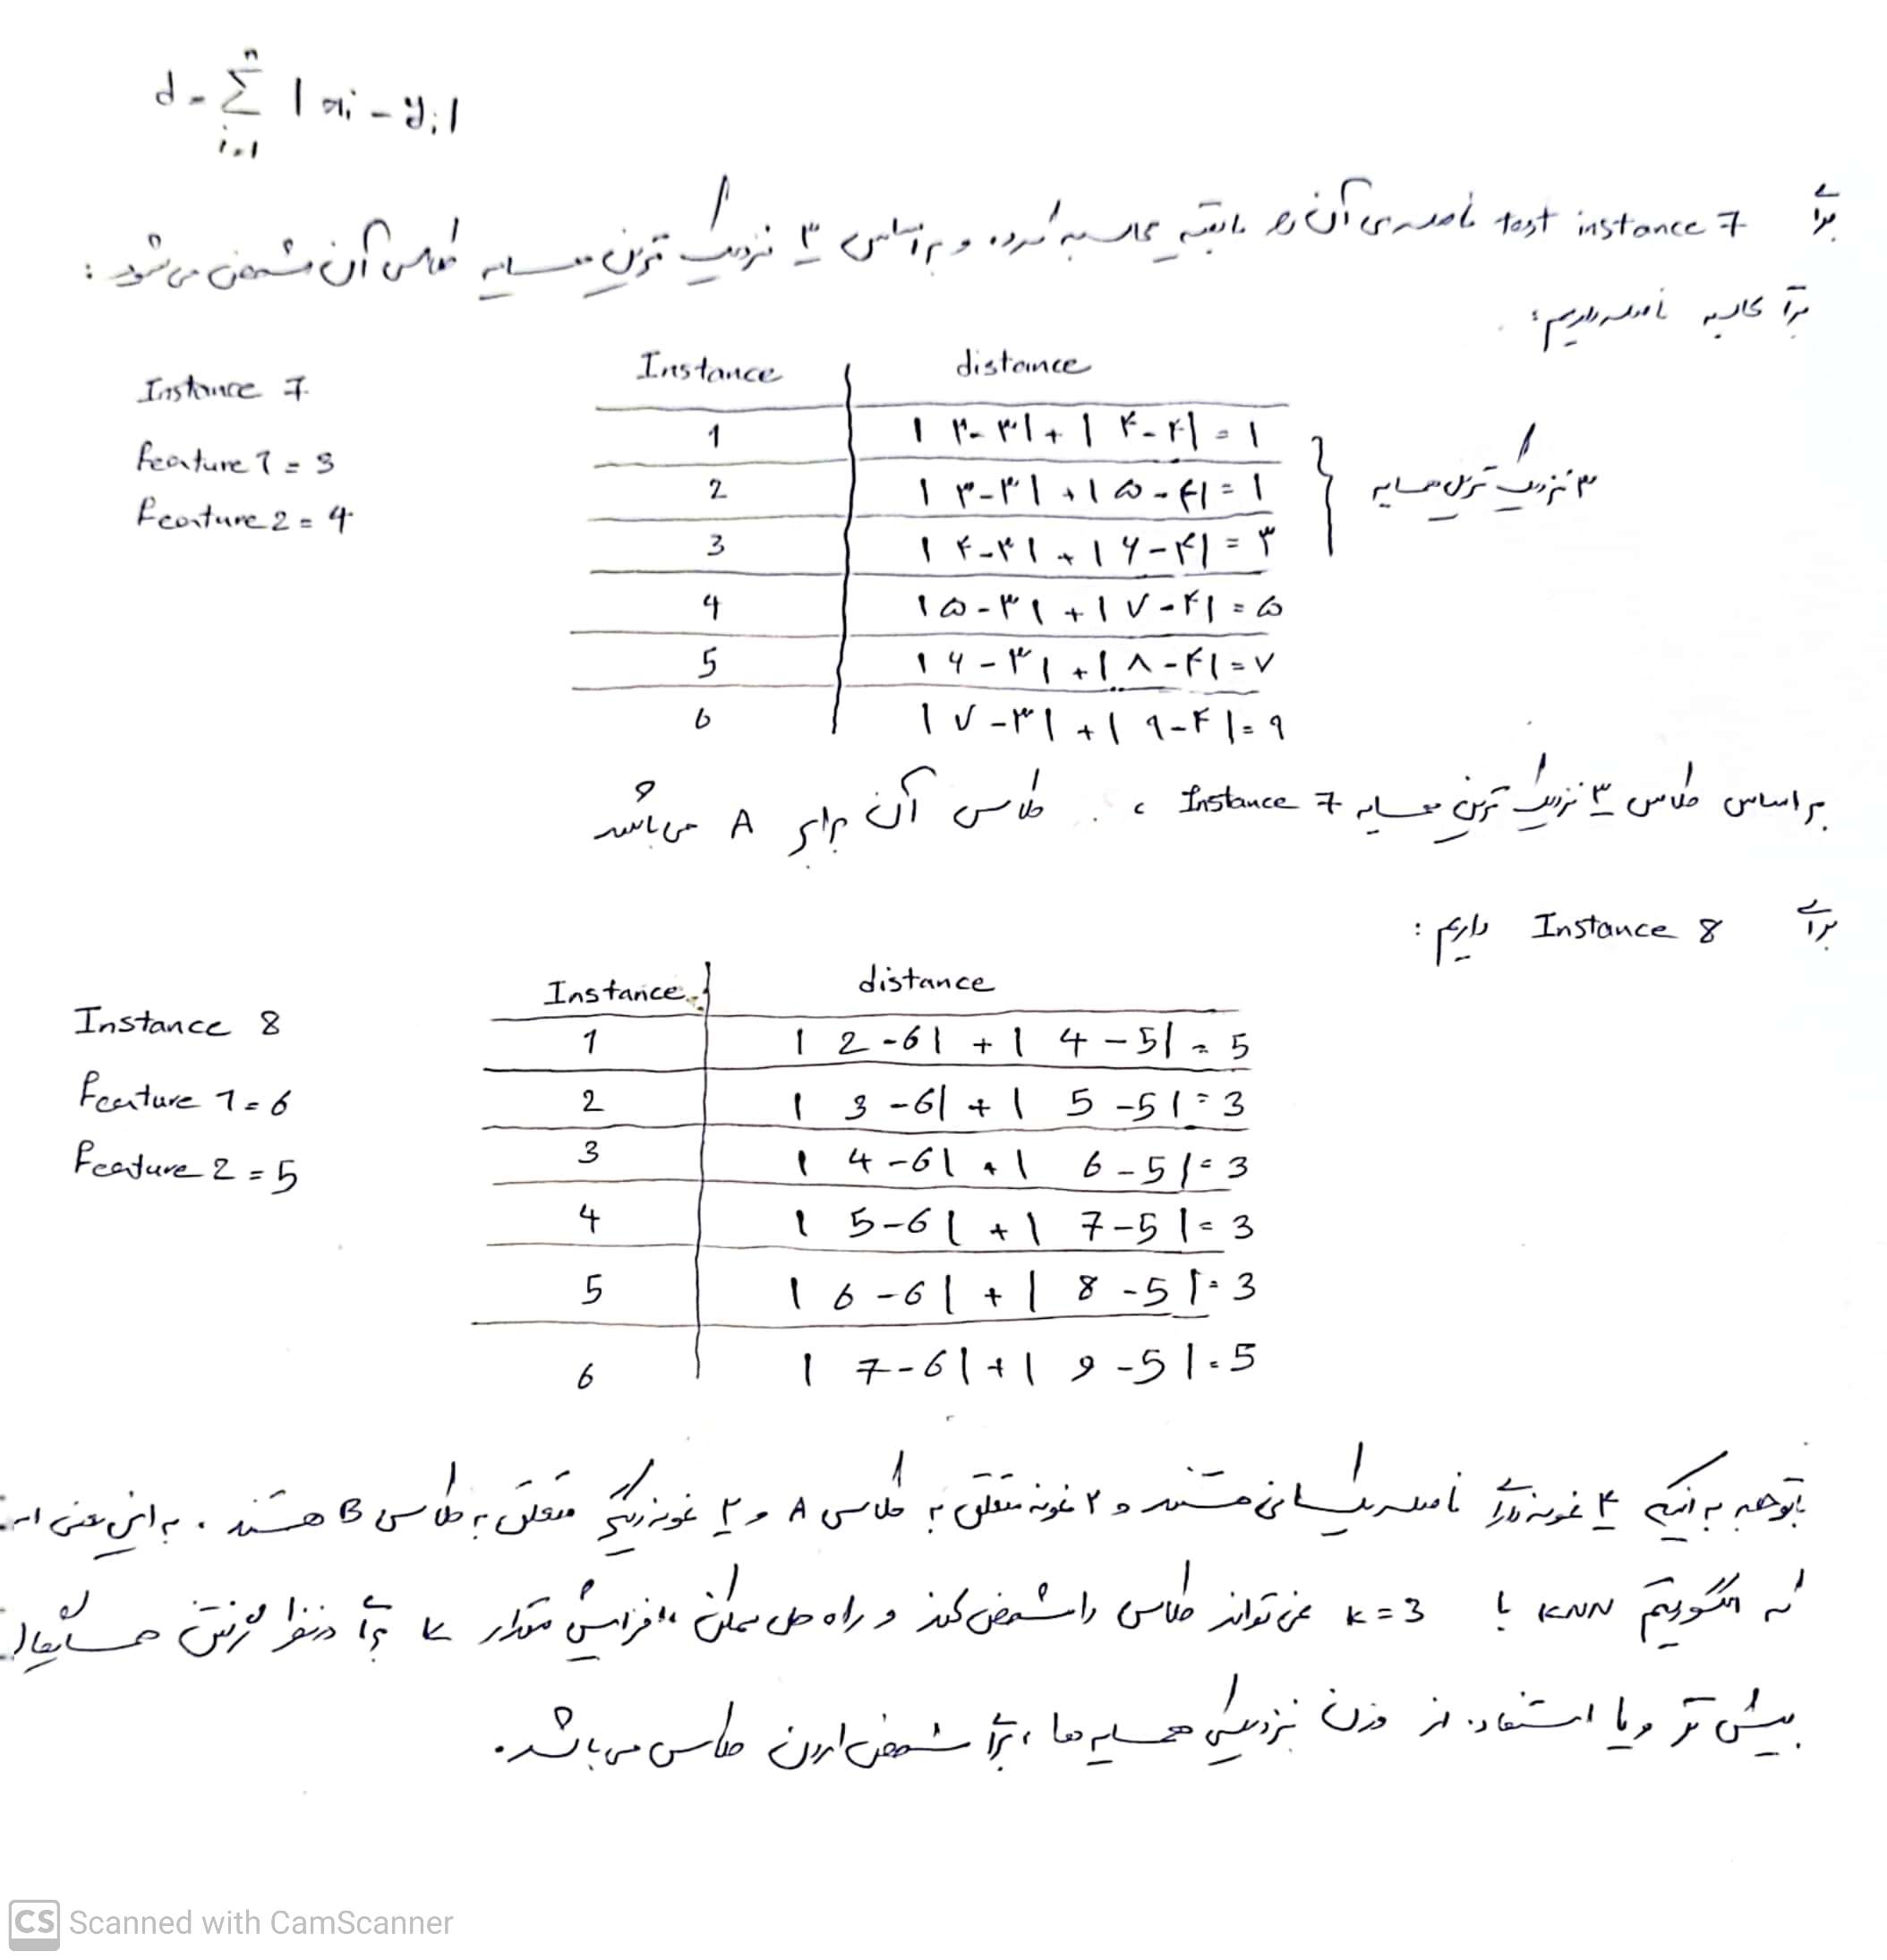 d = Σ |xi - yi|
n
i=1
برای test instance 7 فاصله‌ی آن را با بقیه محاسبه کرده و بر اساس ۳ نزدیک ترین همسایه کلاس آن مشخص می شود :
برای محاسبه فاصله داریم :
Instance 7
Feature 1 = 3
Feature 2 = 4
Instance distance
1 |۳-۳|+|۴-۴| = ۱
2 |۳-۳|+|۵-۴| = ۱
3 |۴-۳|+|۶-۴| = ۳
4 |۵-۳|+|۷-۴| = ۵
5 |۶-۳|+|۸-۴| = ۷
6 |۷-۳|+|۹-۴| = ۹
۳ نزدیک ترین همسایه
بر اساس کلاس ۳ نزدیک ترین همسایه Instance 7 ، کلاس آن برابر A می باشد
برای Instance 8 داریم :
Instance 8
Feature 1 = 6
Feature 2 = 5
Instance distance
1 |2-6| + |4-5| = 5
2 |3-6| + |5-5| = 3
3 |4-6| + |6-5| = 3
4 |5-6| + |7-5| = 3
5 |6-6| + |8-5| = 3
6 |7-6| + |9-5| = 5
باتوجه به اینکه ۴ نمونه دارای فاصله یکسانی هستند و ۲ نمونه متعلق به کلاس A و ۲ نمونه دیگر متعلق به کلاس B هستند . به این معنی
که الگوریتم KNN با k=3 نمی تواند کلاس را مشخص کند و راه حل ممکن افزایش مقدار k برای درنظر گرفتن همسایه‌های
بیش تر و یا استفاده از وزن نزدیکی همسایه ها ، برای مشخص کردن کلاس می باشد .
CS Scanned with CamScanner